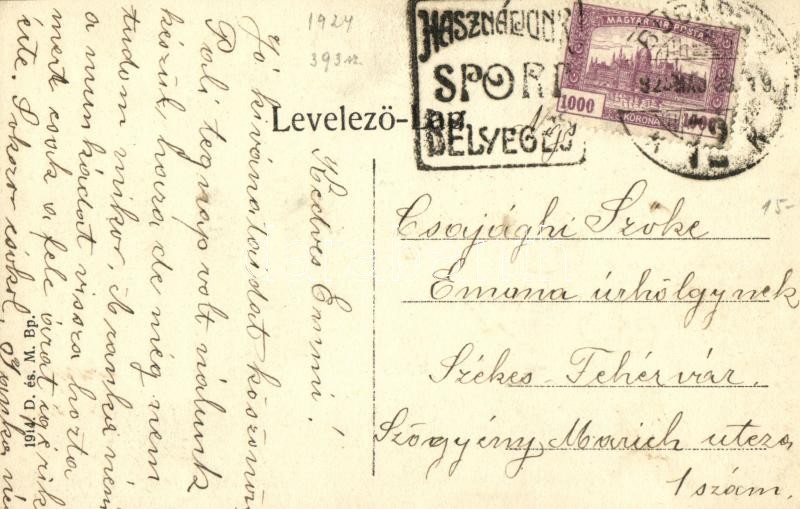 1924
393
HASZNÁLJUNK
SPORT
BÉLYEGET
MAGYAR KIR. POSTA
1000
KORONA
1000
Levelező-Lap
15-
Csajághi Szőke
Emma úrhölgynek
Székes-Fehérvár.
Szögyény Marich utcza
1 szám.
Kedves Emmi!
Jó kívánataidat köszönöm
Poli tegnap volt nálunk
készül, haza de még nem
tudom mikor. Aranka néni
a munkádat vissza hozta
mert csak a fele árat igérik
érte. Sokszor csókol. Ilonka néni
1914 D. és. M. Bp.